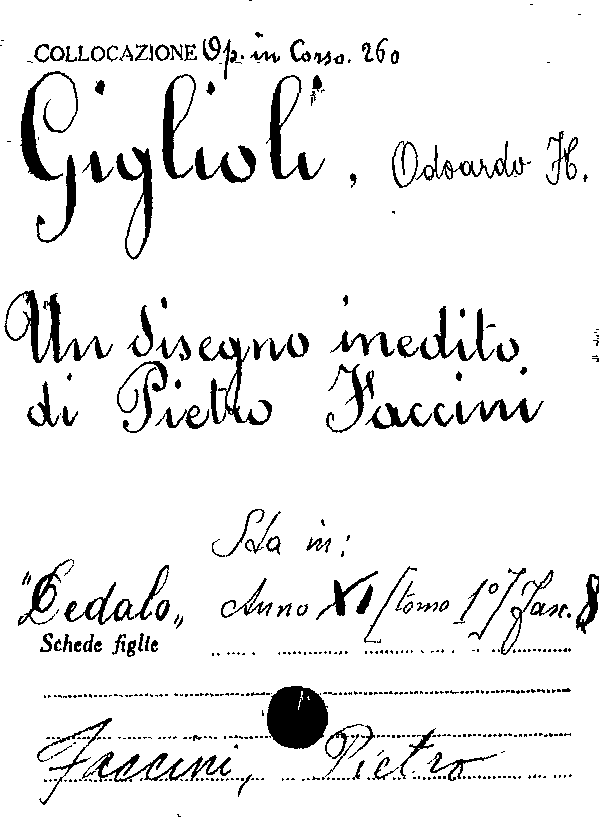 COLLOCAZIONE Op. in Corso. 260
Giglioli, Odoardo H.
Un disegno inedito
di Pietro Faccini
Sta in:
"Dedalo" Anno XI [tomo 1°] Fasc. 8
Schede figlie
Faccini, Pietro